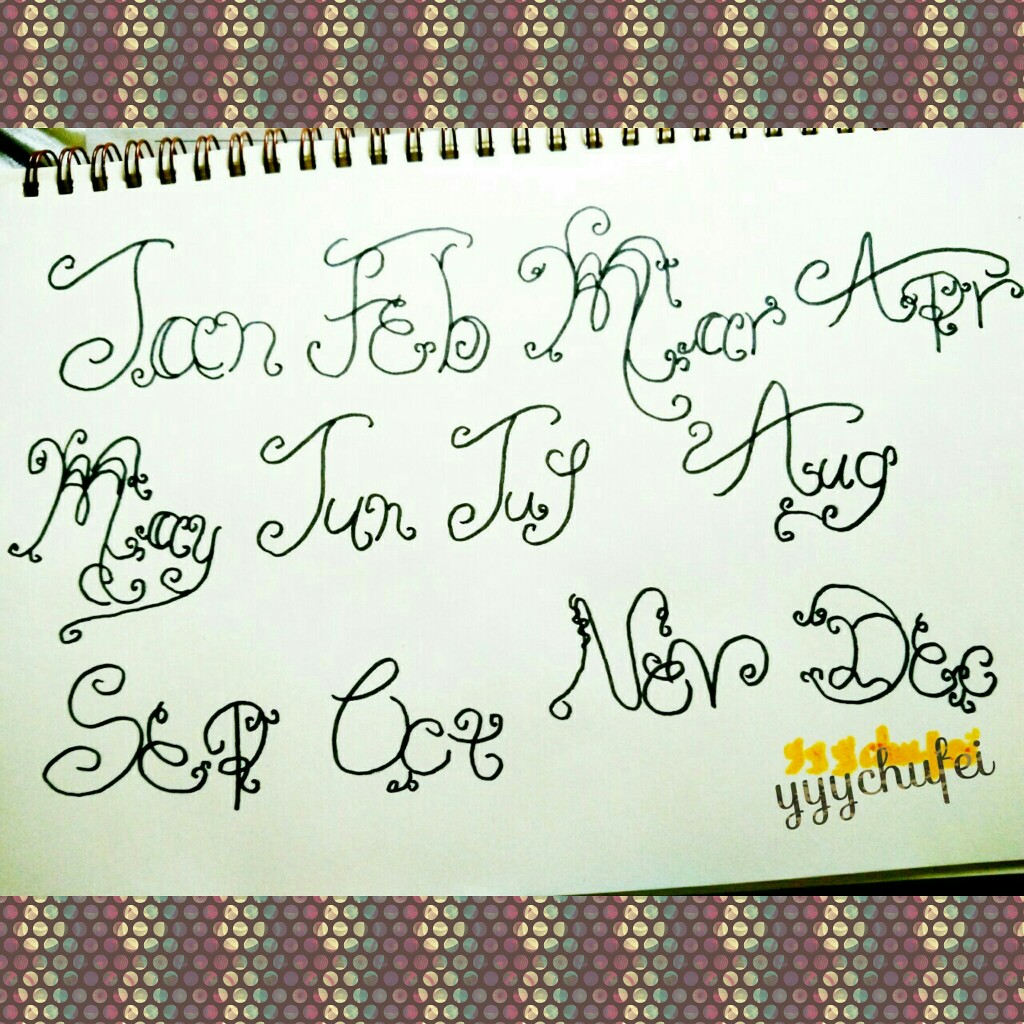 Jan Feb Mar Apr
May Jun Jul Aug
Sep Oct Nov Dec
yyychufei
yyychufei